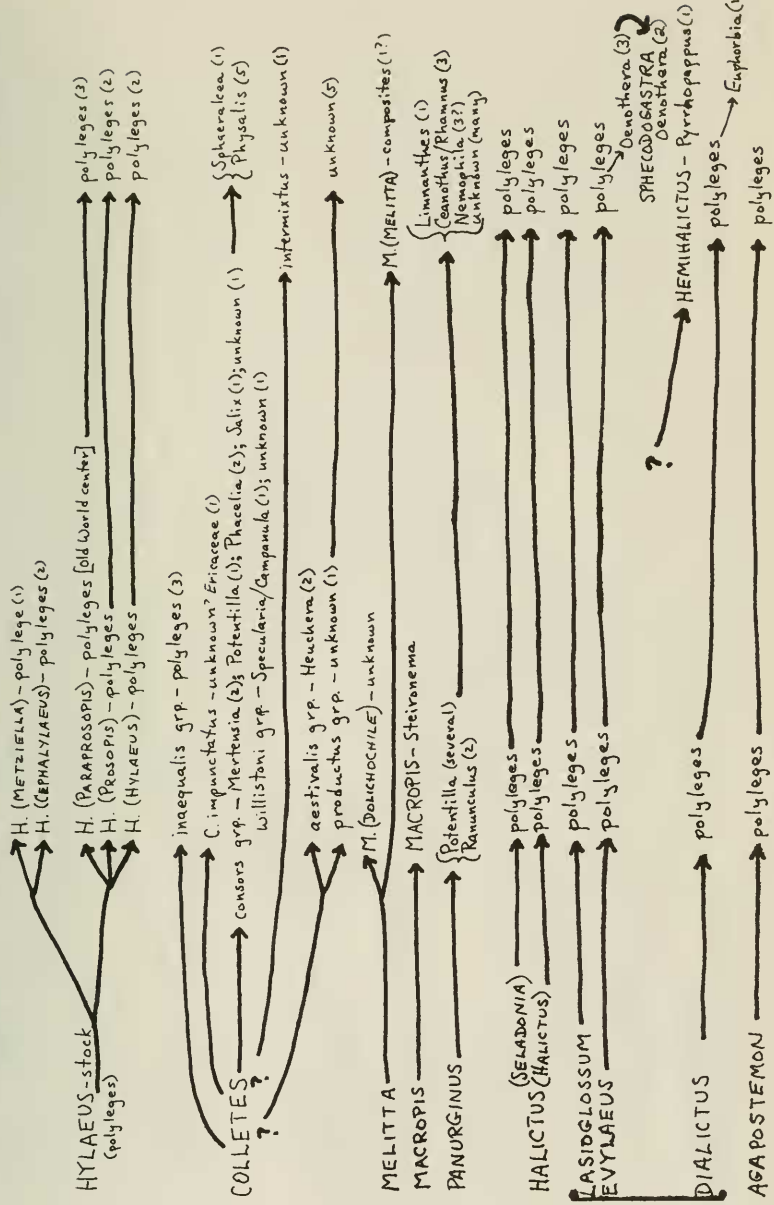 H. (METZIELLA) - polylege (1)
H. (CEPHALYLAEUS) - polyleges (2)
HYLAEUS-stock
(polyleges)
H. (PARAPROSOPIS) - polyleges [Old World center] polyleges (3)
H. (PROSOPIS) - polyleges polyleges (2)
H. (HYLAEUS) - polyleges polyleges (2)
inaequalis grp. - polyleges (3)
C. impunctatus - unknown? Ericaceae (1)
COLLETES
?
?
consors grp. - Mertensia (2); Potentilla (1); Phacelia (2); Salix (1); unknown (1)
{Sphaeralcea (1)
{Physalis (5)
Willistoni grp. - Specularia/Campanula (1); unknown (1)
intermixtus - unknown (1)
aestivalis grp. - Heuchera (2)
productus grp. - unknown (1) unknown (5)
M. (DOLICHOCHILE) - unknown
MELITTA M. (MELITTA) - composites (1?)
MACROPIS MACROPIS - Steironema
PANURGINUS {Potentilla (several)
{Ranunculus (2)
{Limnanthes (1)
{Ceanothus/Rhamnus (3)
{Nemophila (3?)
{unknown (many)
HALICTUS (SELADONIA) polyleges polyleges
(HALICTUS) polyleges polyleges
LASIOGLOSSUM polyleges polyleges
EVYLAEUS polyleges polyleges
Oenothera (3)
SPHECODOGASTRA
Oenothera (2)
? HEMIHALICTUS - Pyrrhopappus (1)
DIALICTUS polyleges polyleges Euphorbia (1
AGAPOSTEMON polyleges polyleges